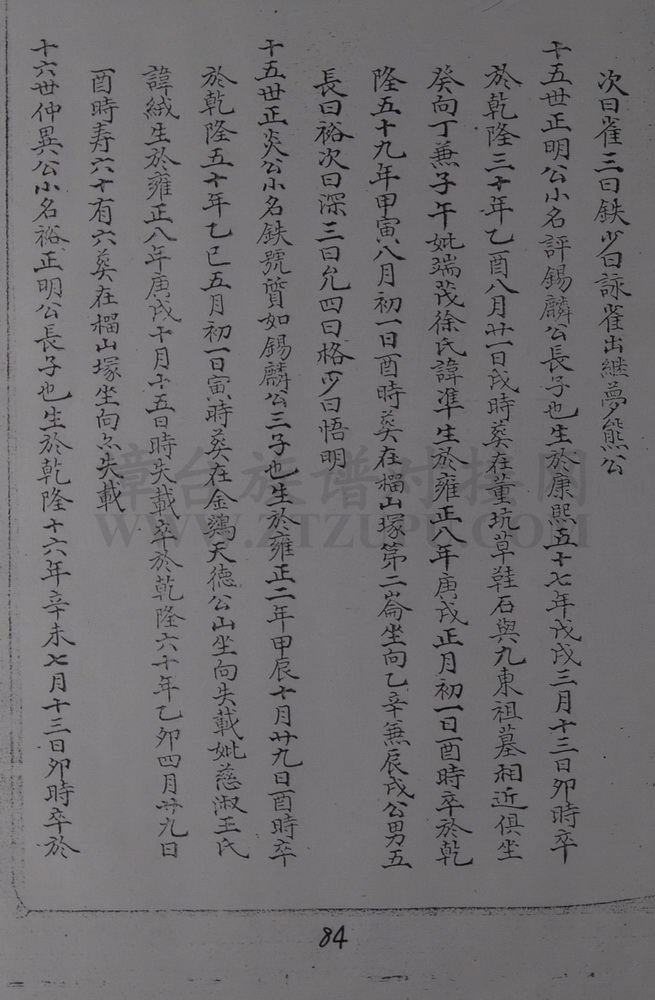 次曰雀三曰鉄少曰詠雀出継夢熊公
十五世正明公小名評錫麟公長子也生於康熙五十七年戊戌三月十三日卯時卒
於乾隆三十年乙酉八月廿一日戌時葬在董坑草鞋石與九東祖墓相近俱坐
癸向丁兼子午妣端茂徐氏諱準生於雍正八年庚戌正月初一日酉時卒於乾
隆五十九年甲寅八月初一日酉時葬在榴山塚第二崙坐向乙辛兼辰戌公男五
長曰裕次曰深三曰允四曰格少曰悟明
十五世正炎公小名鉄號質如錫麟公三子也生於雍正二年甲辰十月廿九日酉時卒
於乾隆五十年乙巳五月初一日寅時葬在金鷄天德公山坐向失載妣慈淑王氏
諱絨生於雍正八年庚戌十月十五日時失載卒於乾隆六十年乙卯四月廿九日
酉時寿六十有六葬在榴山塚坐向亦失載
十六世仲異公小名裕正明公長子也生於乾隆十六年辛未七月十三日卯時卒於
84
漳台族谱对接网
WWW.ZTZUPU.COM